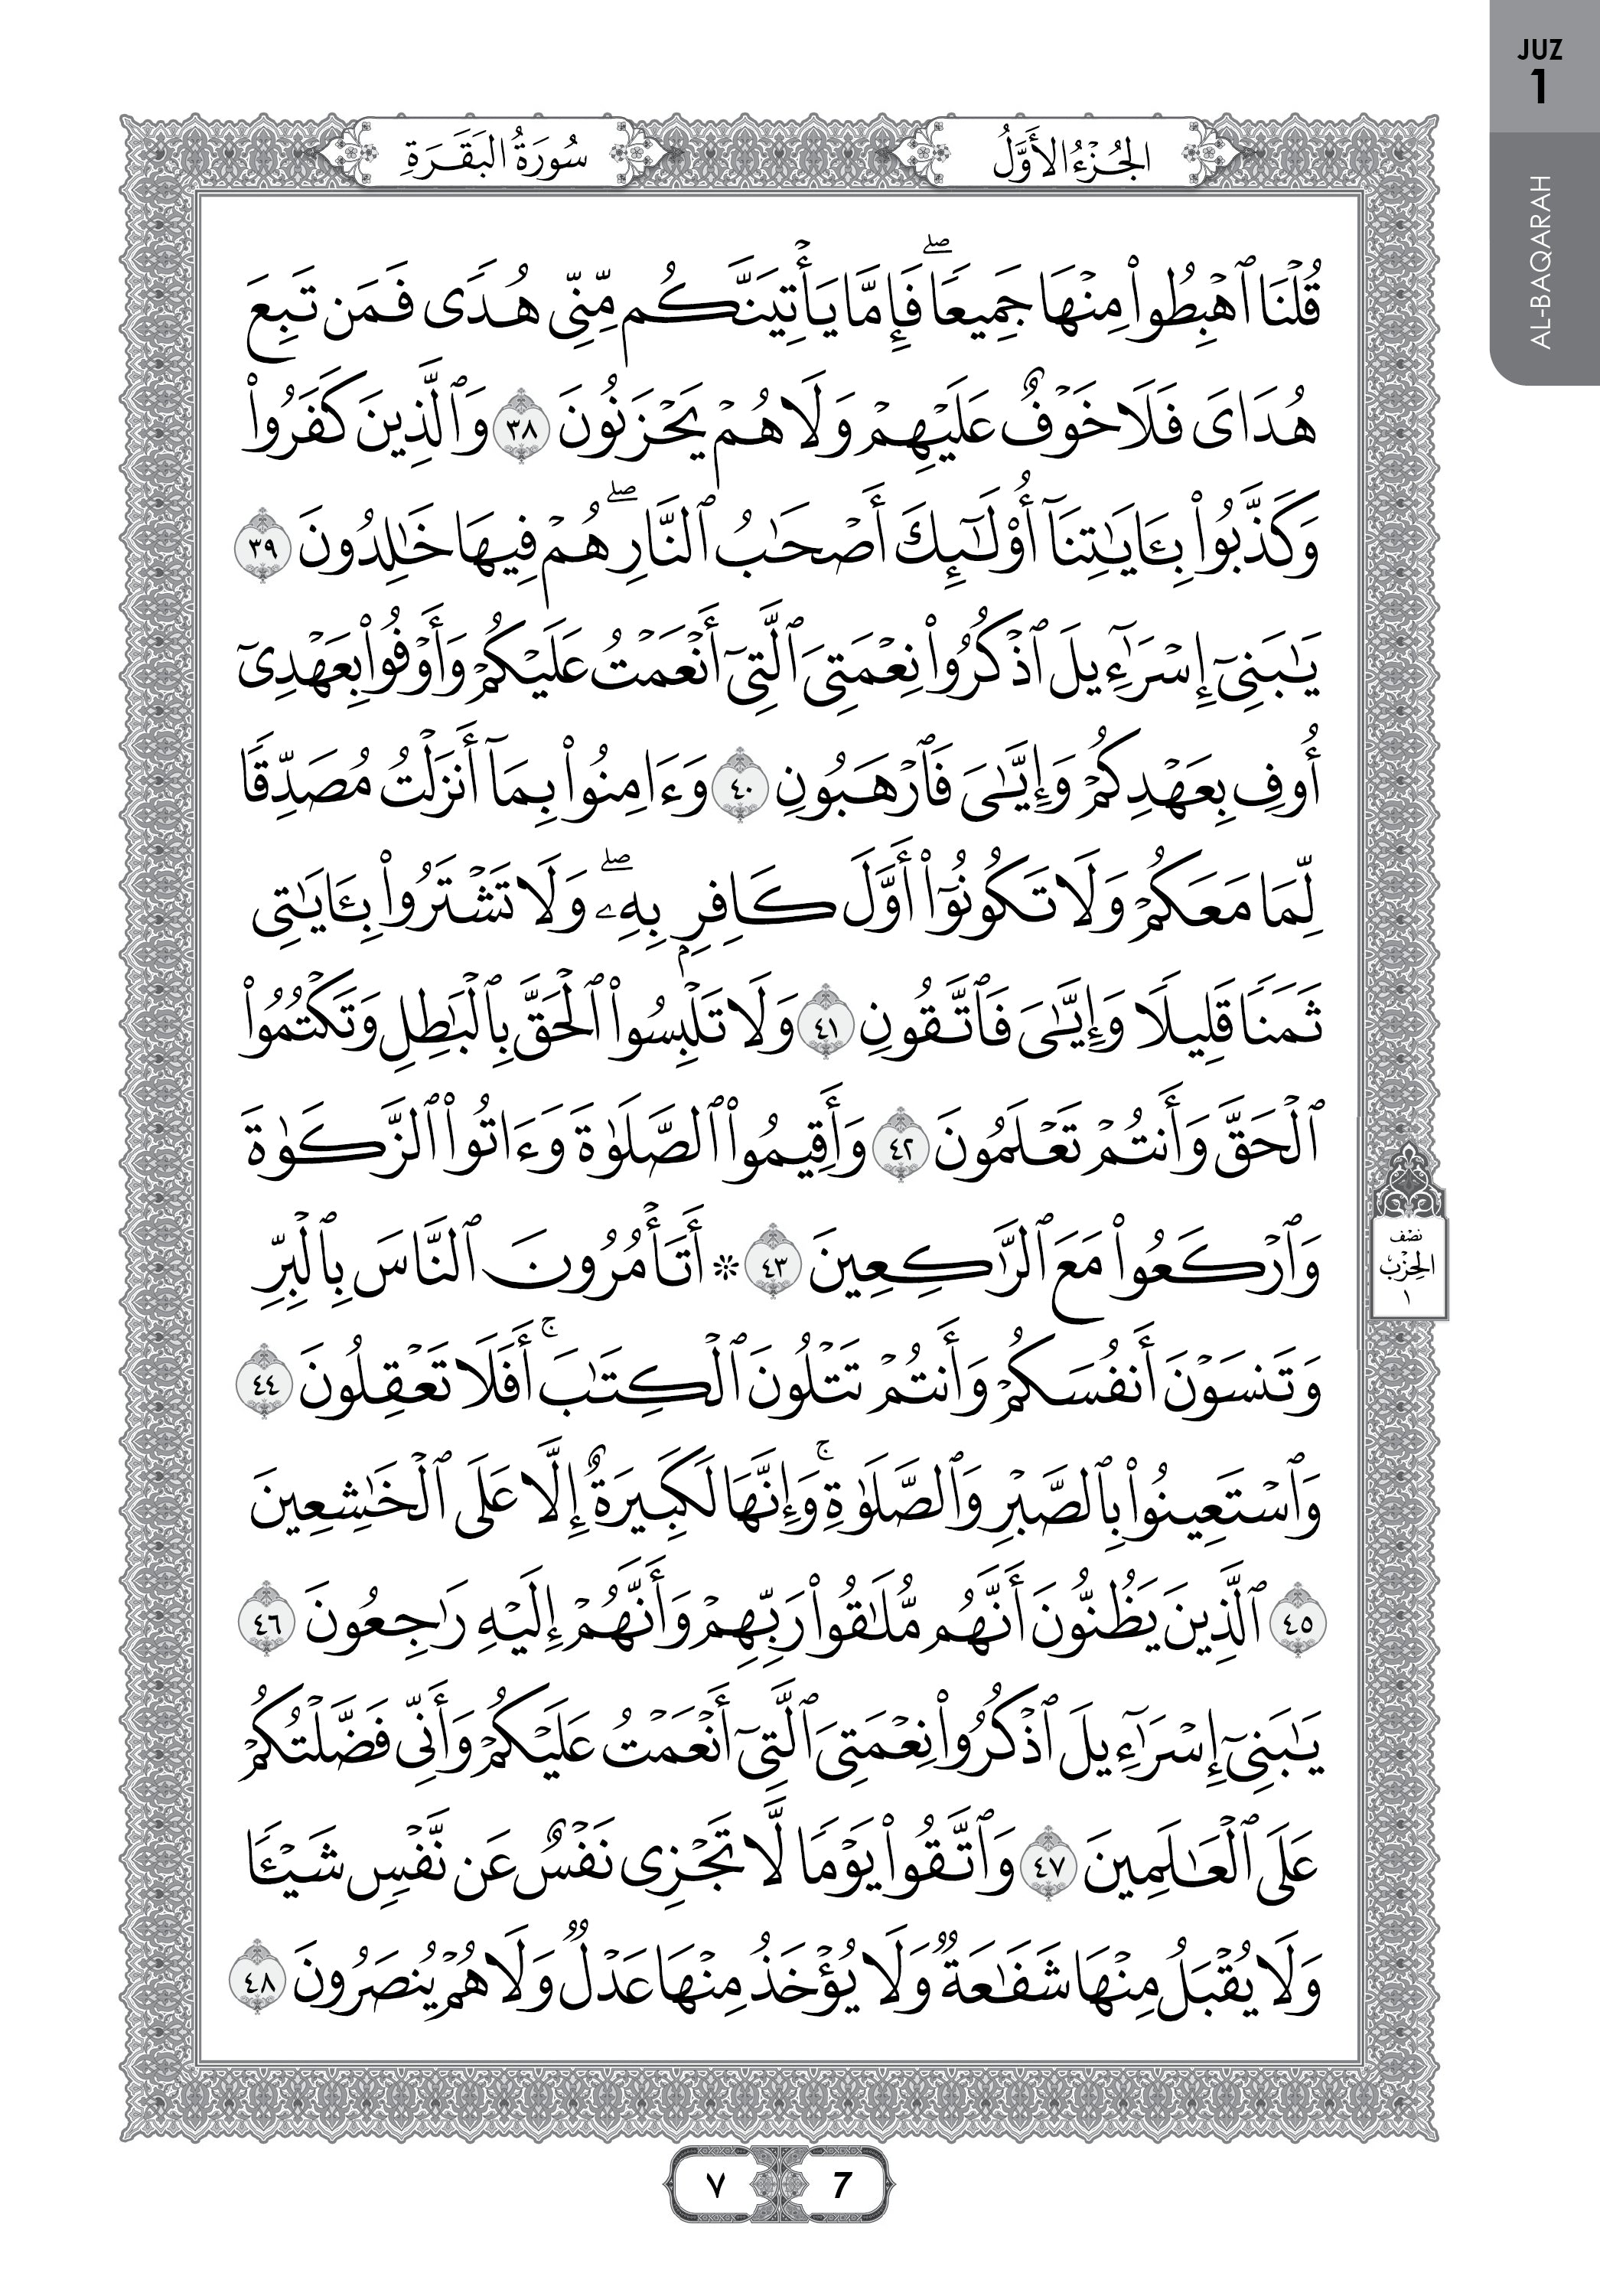 JUZ
1
AL-BAQARAH
الجُزْءُ الأَوَّلُ
سُورَةُ البَقَرَةِ
قُلْنَا ٱهْبِطُوا۟ مِنْهَا جَمِيعًا ۖ فَإِمَّا يَأْتِيَنَّكُم مِّنِّى هُدًى فَمَن تَبِعَ
هُدَاىَ فَلَا خَوْفٌ عَلَيْهِمْ وَلَا هُمْ يَحْزَنُونَ ٣٨ وَٱلَّذِينَ كَفَرُوا۟
وَكَذَّبُوا۟ بِـَٔايَـٰتِنَآ أُو۟لَـٰٓئِكَ أَصْحَـٰبُ ٱلنَّارِ ۖ هُمْ فِيهَا خَـٰلِدُونَ ٣٩
يَـٰبَنِىٓ إِسْرَٰٓءِيلَ ٱذْكُرُوا۟ نِعْمَتِىَ ٱلَّتِىٓ أَنْعَمْتُ عَلَيْكُمْ وَأَوْفُوا۟ بِعَهْدِىٓ
أُوفِ بِعَهْدِكُمْ وَإِيَّـٰىَ فَٱرْهَبُونِ ٤٠ وَءَامِنُوا۟ بِمَآ أَنزَلْتُ مُصَدِّقًا
لِّمَا مَعَكُمْ وَلَا تَكُونُوٓا۟ أَوَّلَ كَافِرٍۭ بِهِۦ ۖ وَلَا تَشْتَرُوا۟ بِـَٔايَـٰتِى
ثَمَنًا قَلِيلًا وَإِيَّـٰىَ فَٱتَّقُونِ ٤١ وَلَا تَلْبِسُوا۟ ٱلْحَقَّ بِٱلْبَـٰطِلِ وَتَكْتُمُوا۟
ٱلْحَقَّ وَأَنتُمْ تَعْلَمُونَ ٤٢ وَأَقِيمُوا۟ ٱلصَّلَوٰةَ وَءَاتُوا۟ ٱلزَّكَوٰةَ
وَٱرْكَعُوا۟ مَعَ ٱلرَّٰكِعِينَ ٤٣ ۞ أَتَأْمُرُونَ ٱلنَّاسَ بِٱلْبِرِّ
نصف
الحزب
١
وَتَنسَوْنَ أَنفُسَكُمْ وَأَنتُمْ تَتْلُونَ ٱلْكِتَـٰبَ ۚ أَفَلَا تَعْقِلُونَ ٤٤
وَٱسْتَعِينُوا۟ بِٱلصَّبْرِ وَٱلصَّلَوٰةِ ۚ وَإِنَّهَا لَكَبِيرَةٌ إِلَّا عَلَى ٱلْخَـٰشِعِينَ
٤٥ ٱلَّذِينَ يَظُنُّونَ أَنَّهُم مُّلَـٰقُوا۟ رَبِّهِمْ وَأَنَّهُمْ إِلَيْهِ رَٰجِعُونَ ٤٦
يَـٰبَنِىٓ إِسْرَٰٓءِيلَ ٱذْكُرُوا۟ نِعْمَتِىَ ٱلَّتِىٓ أَنْعَمْتُ عَلَيْكُمْ وَأَنِّى فَضَّلْتُكُمْ
عَلَى ٱلْعَـٰلَمِينَ ٤٧ وَٱتَّقُوا۟ يَوْمًا لَّا تَجْزِى نَفْسٌ عَن نَّفْسٍ شَيْـًٔا
وَلَا يُقْبَلُ مِنْهَا شَفَـٰعَةٌ وَلَا يُؤْخَذُ مِنْهَا عَدْلٌ وَلَا هُمْ يُنصَرُونَ ٤٨
7 ٧